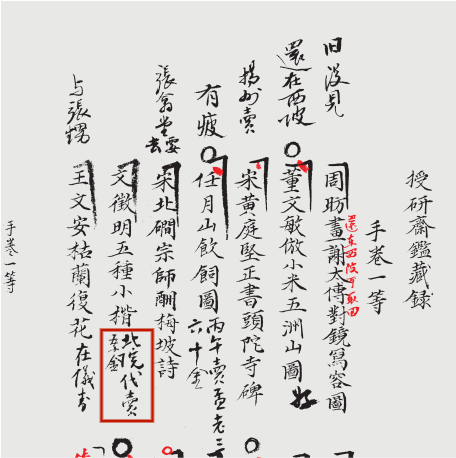 授研齋鑑藏録
手卷一等
舊沒見
周昉畫謝太傅對鏡寫容圖
還在西坡
還在西坡可取回
董文敏倣小米五洲山圖
揚州賣
宋黄庭堅正書頭陀寺碑
有疲
任月山飲飼圖
丙午賣孟老三
六十金
張翁堂要去
宋北磵宗師酬梅坡詩
文徵明五種小楷
北完代賣
与張甥
王文安枯蘭復花
在儀
手卷一等